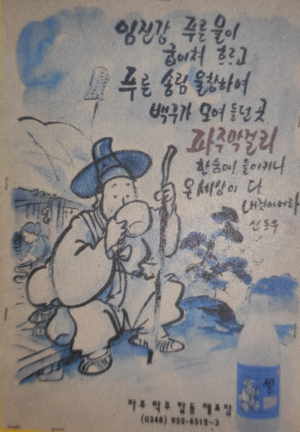 임진강 푸른 물이
굽이쳐 흐르고
푸른 송림 울창하여
백구가 모여 들던 곳
파주막걸리
한숨에 들이키니
온 세상이 다
내것이어라
신동우
파주 탁주 합동 제조장
(0348) 952-4313~3